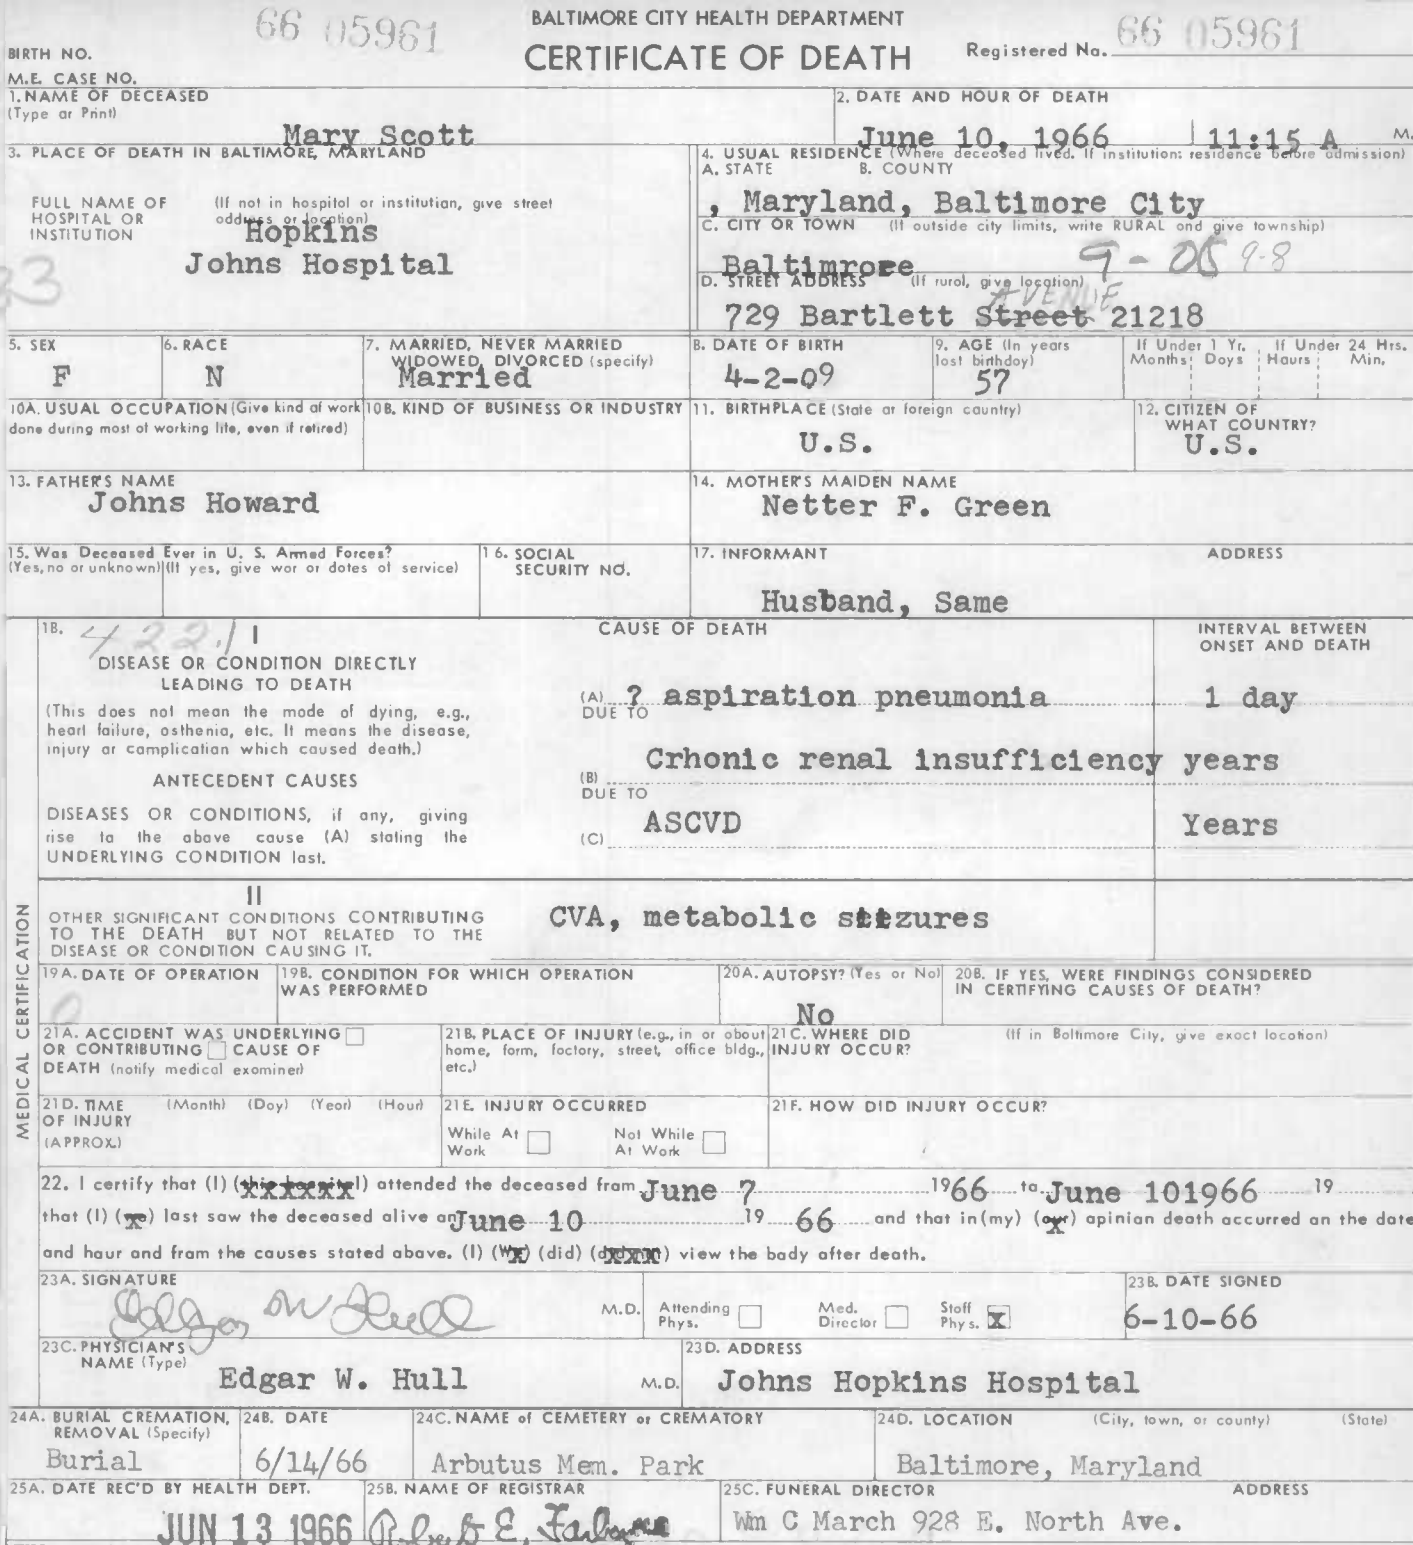 66 05961
BALTIMORE CITY HEALTH DEPARTMENT
CERTIFICATE OF DEATH
Registered No. 66 05961
BIRTH NO.
M.E. CASE NO.
1. NAME OF DECEASED
(Type or Print)
Mary Scott
2. DATE AND HOUR OF DEATH
June 10, 1966 11:15 A M.
3. PLACE OF DEATH IN BALTIMORE, MARYLAND
FULL NAME OF HOSPITAL OR INSTITUTION
(If not in hospital or institution, give street address or location)
Hopkins
Johns Hospital
4. USUAL RESIDENCE (Where deceased lived. If institution: residence before admission)
A. STATE B. COUNTY
, Maryland, Baltimore City
C. CITY OR TOWN (If outside city limits, write RURAL and give township)
Baltimrore 9-8
D. STREET ADDRESS (If rural, give location)
AVENUE
729 Bartlett Street 21218
5. SEX
F
6. RACE
N
7. MARRIED, NEVER MARRIED
WIDOWED, DIVORCED (specify)
Married
8. DATE OF BIRTH
4-2-09
9. AGE (In years
last birthday)
57
If Under 1 Yr. If Under 24 Hrs.
Months Days Hours Min.
10A. USUAL OCCUPATION (Give kind of work
done during most of working life, even if retired)
10B. KIND OF BUSINESS OR INDUSTRY
11. BIRTHPLACE (State or foreign country)
U.S.
12. CITIZEN OF
WHAT COUNTRY?
U.S.
13. FATHER'S NAME
Johns Howard
14. MOTHER'S MAIDEN NAME
Netter F. Green
15. Was Deceased Ever in U. S. Armed Forces?
(Yes, no or unknown) (If yes, give war or dates of service)
16. SOCIAL
SECURITY NO.
17. INFORMANT ADDRESS
Husband, Same
MEDICAL CERTIFICATION
18. 422.1 I
DISEASE OR CONDITION DIRECTLY
LEADING TO DEATH
(This does not mean the mode of dying, e.g.,
heart failure, asthenia, etc. It means the disease,
injury or complication which caused death.)
ANTECEDENT CAUSES
DISEASES OR CONDITIONS, if any, giving
rise to the above cause (A) stating the
UNDERLYING CONDITION last.
CAUSE OF DEATH
INTERVAL BETWEEN
ONSET AND DEATH
(A) ? aspiration pneumonia 1 day
DUE TO
(B) Crhonic renal insufficiency years
DUE TO
(C) ASCVD Years
II
OTHER SIGNIFICANT CONDITIONS CONTRIBUTING
TO THE DEATH BUT NOT RELATED TO THE
DISEASE OR CONDITION CAUSING IT.
CVA, metabolic seizures
19A. DATE OF OPERATION
0
19B. CONDITION FOR WHICH OPERATION
WAS PERFORMED
20A. AUTOPSY? (Yes or No)
No
20B. IF YES, WERE FINDINGS CONSIDERED
IN CERTIFYING CAUSES OF DEATH?
21A. ACCIDENT WAS UNDERLYING
OR CONTRIBUTING CAUSE OF
DEATH (notify medical examiner)
21B. PLACE OF INJURY (e.g., in or about
home, farm, factory, street, office bldg.,
etc.)
21C. WHERE DID
INJURY OCCUR?
(If in Baltimore City, give exact location)
21D. TIME (Month) (Day) (Year) (Hour)
OF INJURY
(APPROX.)
21E. INJURY OCCURRED
While At Work
Not While At Work
21F. HOW DID INJURY OCCUR?
22. I certify that (I) (this hospital) attended the deceased from June 7 1966 to June 101966 19
that (I) (we) last saw the deceased alive on June 10 19 66 and that in (my) (our) opinion death occurred on the date
and hour and from the causes stated above. (I) (We) (did) (did not) view the body after death.
23A. SIGNATURE
Edgar W Hull
M.D. Attending Phys. Med. Director Staff Phys. X
23B. DATE SIGNED
6-10-66
23C. PHYSICIAN'S
NAME (Type)
Edgar W. Hull M.D.
23D. ADDRESS
Johns Hopkins Hospital
24A. BURIAL CREMATION,
REMOVAL (Specify)
Burial
24B. DATE
6/14/66
24C. NAME of CEMETERY or CREMATORY
Arbutus Mem. Park
24D. LOCATION (City, town, or county) (State)
Baltimore, Maryland
25A. DATE REC'D BY HEALTH DEPT.
JUN 13 1966
25B. NAME OF REGISTRAR
Robert E. Farber
25C. FUNERAL DIRECTOR ADDRESS
Wm C March 928 E. North Ave.